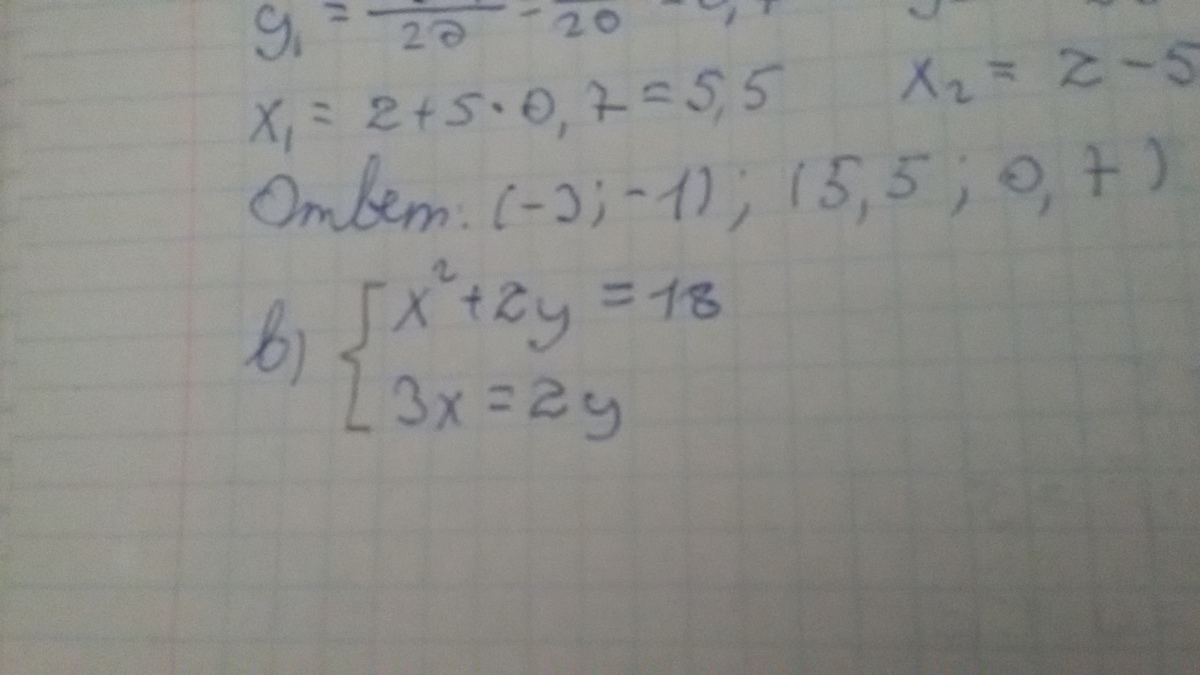 y₁ = 20 = 20
x₁ = 2 + 5 · 0,7 = 5,5 x₂ = 2 - 5
Ответ: (-3; -1); (5,5; 0,7)
в) { x² + 2y = 18
3x = 2y